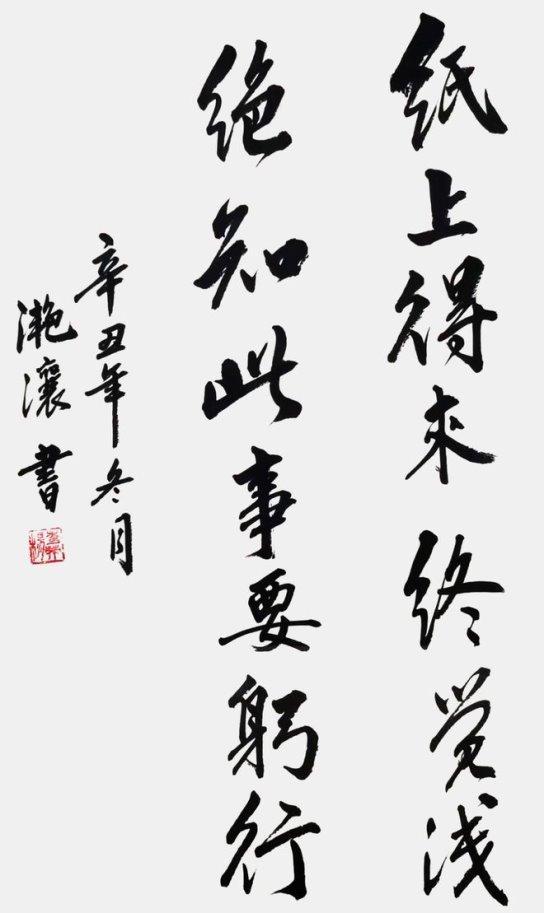 纸上得来终觉浅
绝知此事要躬行
辛丑年冬月
滟瀼書